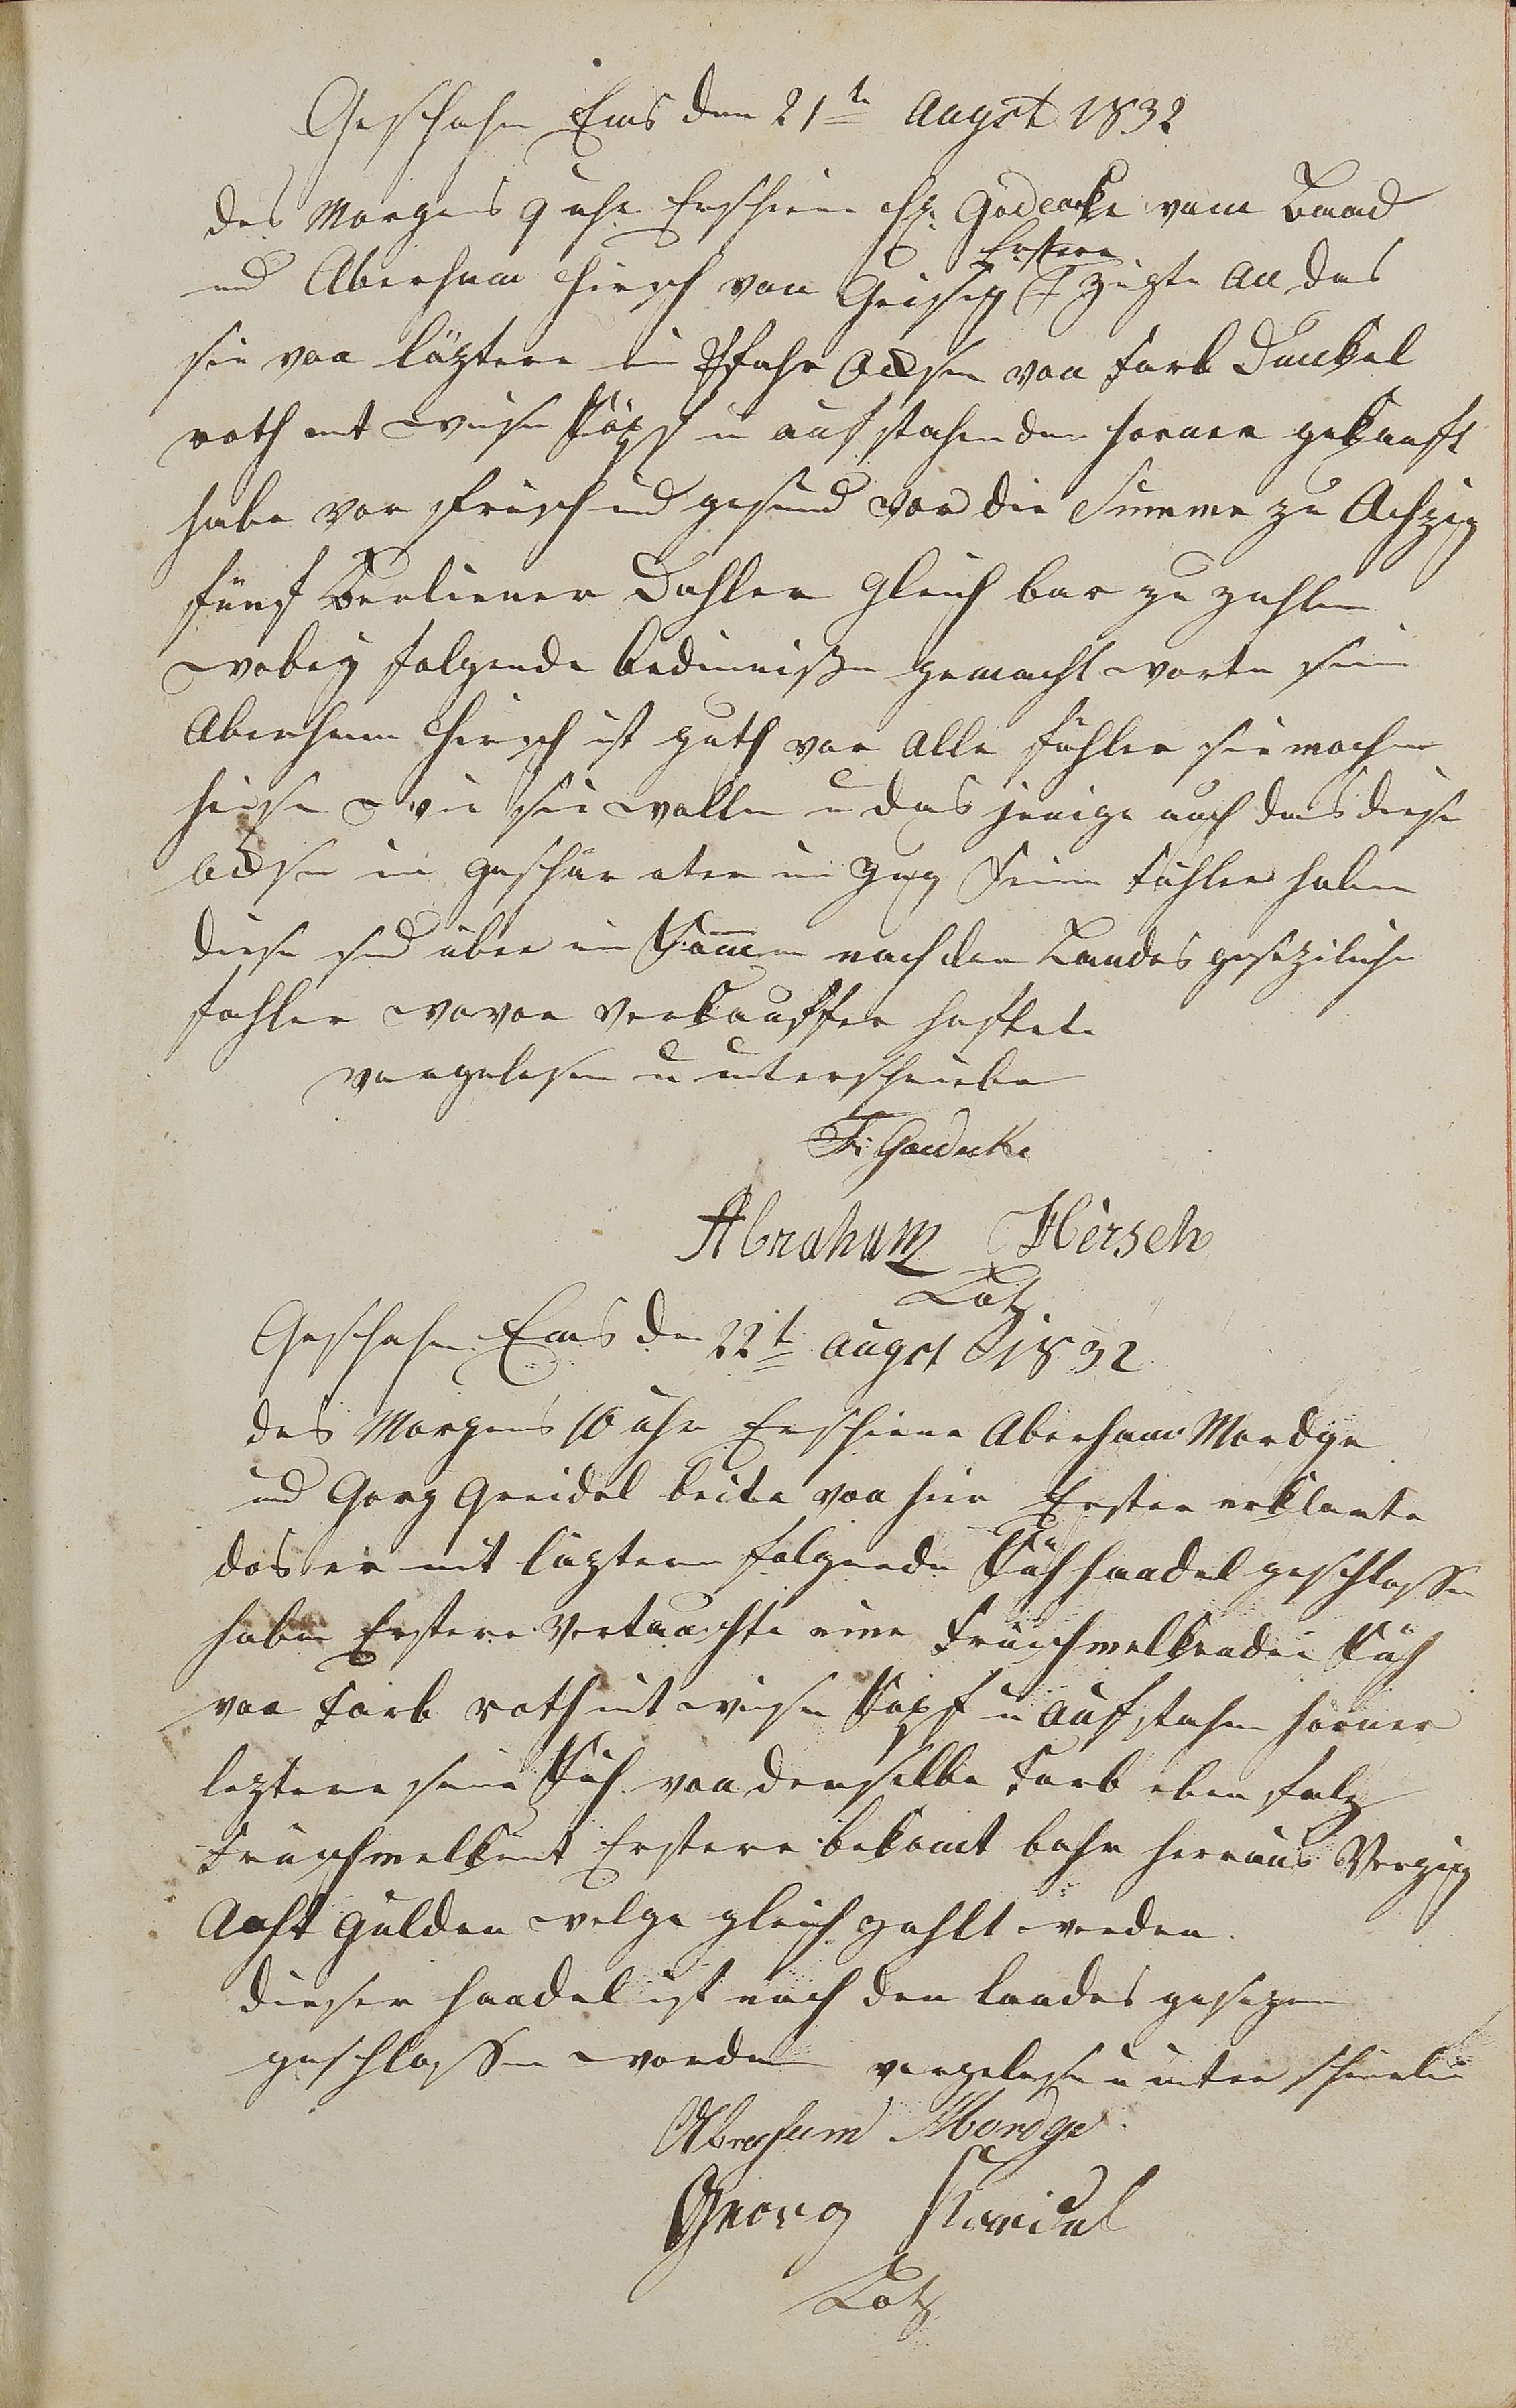 Geschehen Ems den 21te Augst 1832
des Morgens 9 uhr Erschiene H. Godecke vom Baad
und Aberham Hirsch von Geisig Erstere zeigte an das
sie von läztere ein Pfahr Ocksen von Farb Dunckel
roth mit weisen Köpf u aufstehenden Horner gekauft
habe vor frisch und gesund vor die Summe zu Achzig
fünf Berliener Dahler gleich bar zu zahlen
wobey folgende bedinnisse gemacht worte sein
Aberham Hirsch ist guth vor alle Fühler sie mochen
heisen wie sie wollen u das jenige auch das diese
Ocksen im geschär oter im Zug keine Fühler haben
diese sind über ein komen nach den Landes geseziliche
Fahler wovor Verkauffer haftete
vorgelesen u unterschrieben
Fr: Goedecke
Abraham Hirsch
Lotz
Geschehen Ems den 22t augst 1832
des Morgens 10 uhr Erschiene Aberham Mordge
und Gorg Greidel beite von hier Erster erklarte
das er mit läztern folgende Küh handel geschlossen
haben Erstere Vertauschte eine Frischmelkende Küh
von Farb roth mit weisen Kopf u aufstehen Hörner
leztere seine Küh von derselbe Farb eben falz
Frischmelkent Erstere bekomt bahr herraus Verzig
Acht Gulden welge gleich zahlt werden.
dieser Handel ist nach den Landes gesezen
geschlossen worden vorgelesen u unter schrieben
Abraham Mordge.
Georg Kreidel
Lotz